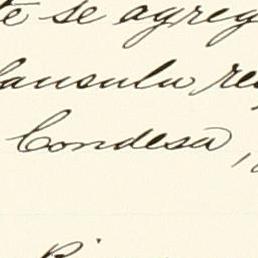 te se agreg
lausula, re
Condesa,